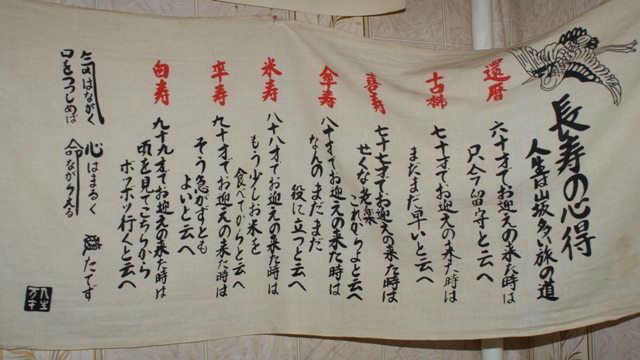 長寿の心得
人生は山坂多い旅の道
還暦
六十才でお迎えの来た時は
只今留守と云へ
古稀
七十才でお迎えの来た時は
まだまだ早いと云へ
喜寿
七十七才でお迎えの来た時は
せくな老楽
これからよと云へ
傘寿
八十才でお迎えの来た時は
なんのまだまだ
役に立つと云へ
米寿
八十八才でお迎えの来た時は
もう少しお米を
食べてからと云へ
卒寿
九十才でお迎えの来た時は
そう急がずとも
よいと云へ
白寿
九十九才でお迎えの来た時は
頃を見てこちらから
ボツボツ行くと云へ
気はながく 心はまるく たてず
口をつつしめば 命ながらえる
人生